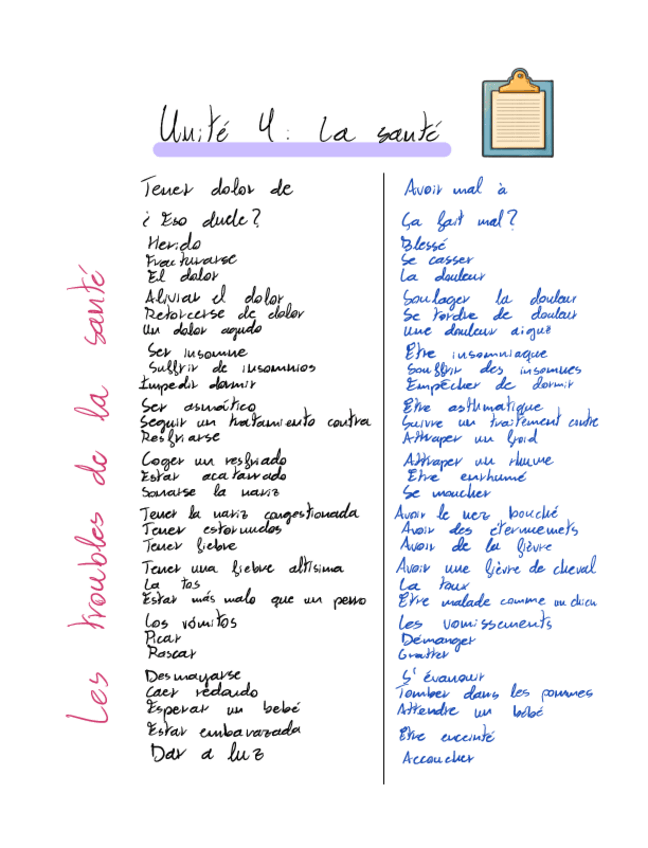 Unité 4: La santé
Les troubles de la santé
Tener dolor de
Avoir mal à
¿Eso duele?
Ça fait mal?
Herido
Blessé
Fracturarse
Se casser
El dolor
La douleur
Aliviar el dolor
Soulager la douleur
Retorcerse de dolor
Se tordre de douleur
Un dolor agudo
Une douleur aiguë
Ser insomne
Etre insomniaque
Suffrir de insomnios
Souffrir des insomnies
Impedir dormir
Empêcher de dormir
Ser asmático
Etre asthmatique
Seguir un tratamiento contra
Suivre un traitement contre
Resfriarse
Attraper un froid
Coger un resfriado
Attraper un rhume
Estar acatarrado
Etre enrhumé
Sonarse la nariz
Se moucher
Tener la nariz congestionada
Avoir le nez bouché
Tener estornudos
Avoir des eternuemets
Tener fiebre
Avoir de la fièvre
Tener una fiebre altísima
Avoir une fièvre de cheval
La tos
La toux
Estar más malo que un perro
Etre malade comme un chien
Los vómitos
Les vomissements
Picar
Démanger
Rascar
Gratter
Desmayarse
S'évanouir
Caer redondo
Tomber dans les pommes
Esperar un bebé
Attendre un bébé
Estar embarazada
Etre enceinté
Dar a luz
Accoucher